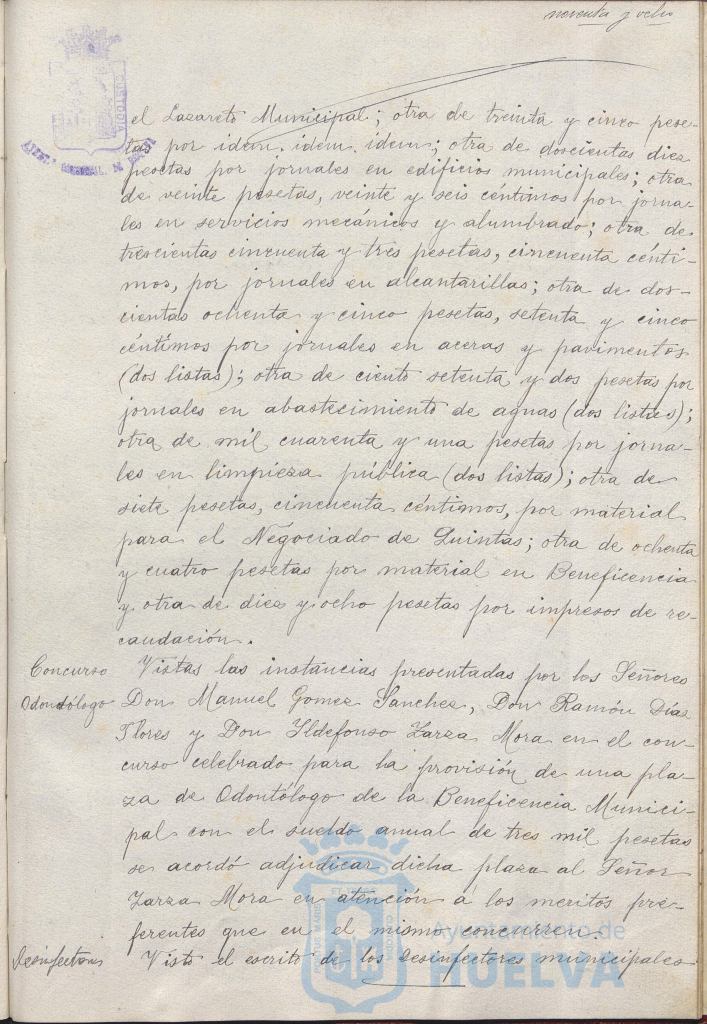 noventa y ocho
el Lazareto Municipal; otra de treinta y cinco pese-
tas por idem. idem. idem; otra de doscientas diez
pesetas por jornales en edificios municipales; otra
de veinte pesetas, veinte y seis céntimos por jorna-
les en servicios mecánicos y alumbrado; otra de
trescientas cincuenta y tres pesetas, cincuenta cénti-
mos, por jornales en alcantarillas; otra de dos-
cientas ochenta y cinco pesetas, setenta y cinco
céntimos por jornales en aceras y pavimentos
(dos listas); otra de ciento setenta y dos pesetas por
jornales en abastecimiento de aguas (dos listas);
otra de mil cuarenta y una pesetas por jorna-
les en limpieza pública (dos listas); otra de
siete pesetas, cincuenta céntimos, por material
para el Negociado de Quintas; otra de ochenta
y cuatro pesetas por material en Beneficencia
y otra de diez y ocho pesetas por impresos de re-
caudación.
Concurso Vistas las instancias presentadas por los Señores
Odondólogo Don Manuel Gomez Sanchez, Don Ramón Días
Flores y Don Ildefonso Zarza Mora en el con-
curso celebrado para la provisión de una pla-
za de Odontólogo de la Beneficencia Munici-
pal con el sueldo anual de tres mil pesetas
se acordó adjudicar dicha plaza al Señor
Zarza Mora en atención á los meritos pre-
ferentes que en el mismo concurren.
Desinfectores Visto el escrito de los desinfectores municipales
CUSTODIA
Ayuntamiento de
HUELVA